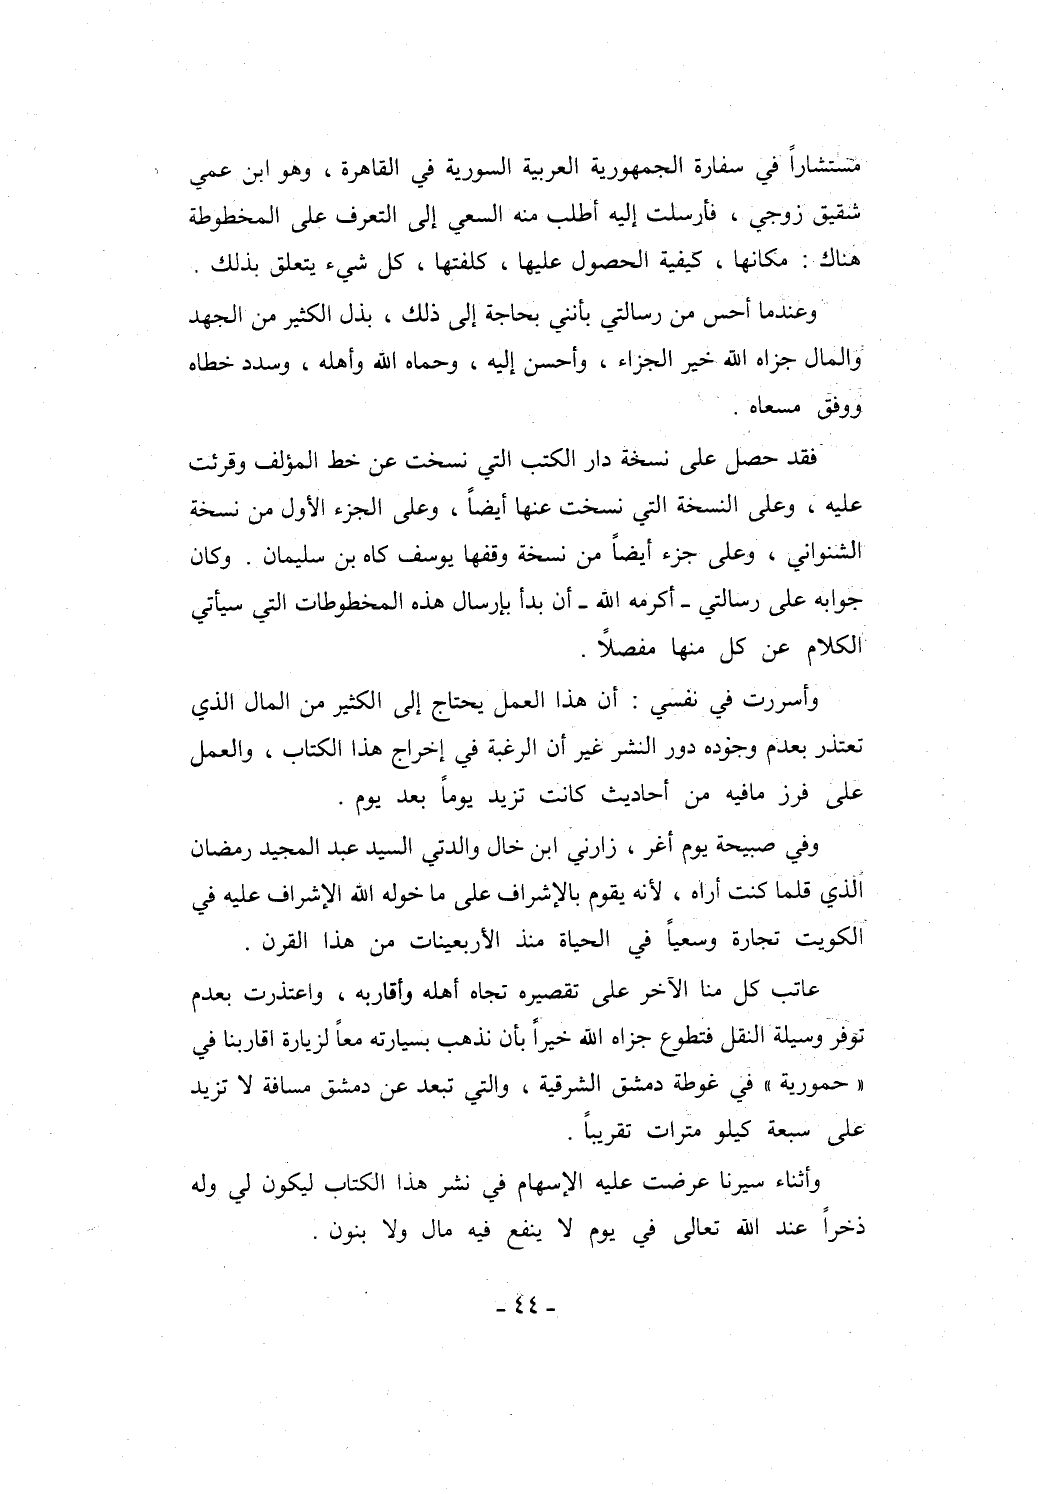 مستشاراً في سفارة الجمهورية العربية السورية في القاهرة ، وهو ابن عمي
شقيق زوجي ، فأرسلت إليه أطلب منه السعي إلى التعرف على المخطوطة
هناك : مكانها ، كيفية الحصول عليها ، كلفتها ، كل شيء يتعلق بذلك .
وعندما أحس من رسالتي بأنني بحاجة إلى ذلك ، بذل الكثير من الجهد
والمال جزاه الله خير الجزاء ، وأحسن إليه ، وحماه الله وأهله ، وسدد خطاه
ووفق مسعاه .
فقد حصل على نسخة دار الكتب التي نسخت عن خط المؤلف وقرئت
عليه ، وعلى النسخة التي نسخت عنها أيضاً ، وعلى الجزء الأول من نسخة
الشنواني ، وعلى جزء أيضاً من نسخة وقفها يوسف كاه بن سليمان . وكان
جوابه على رسالتي ـ أكرمه الله ـ أن بدأ بإرسال هذه المخطوطات التي سيأتي
الكلام عن كل منها مفصلاً .
وأسررت في نفسي : أن هذا العمل يحتاج إلى الكثير من المال الذي
تعتذر بعدم وجوده دور النشر غير أن الرغبة في إخراج هذا الكتاب ، والعمل
على فرز مافيه من أحاديث كانت تزيد يوماً بعد يوم .
وفي صبيحة يوم أغر ، زارني ابن خال والدتي السيد عبد المجيد رمضان
الذي قلما كنت أراه ، لأنه يقوم بالإشراف على ما خوله الله الإشراف عليه في
الكويت تجارة وسعياً في الحياة منذ الأربعينات من هذا القرن .
عاتب كل منا الآخر على تقصيره تجاه أهله وأقاربه ، واعتذرت بعدم
توفر وسيلة النقل فتطوع جزاه الله خيراً بأن نذهب بسيارته معاً لزيارة اقاربنا في
« حمورية » في غوطة دمشق الشرقية ، والتي تبعد عن دمشق مسافة لا تزيد
على سبعة كيلو مترات تقريباً .
وأثناء سيرنا عرضت عليه الإسهام في نشر هذا الكتاب ليكون لي وله
ذخراً عند الله تعالى في يوم لا ينفع فيه مال ولا بنون .
ـ ٤٤ ـ